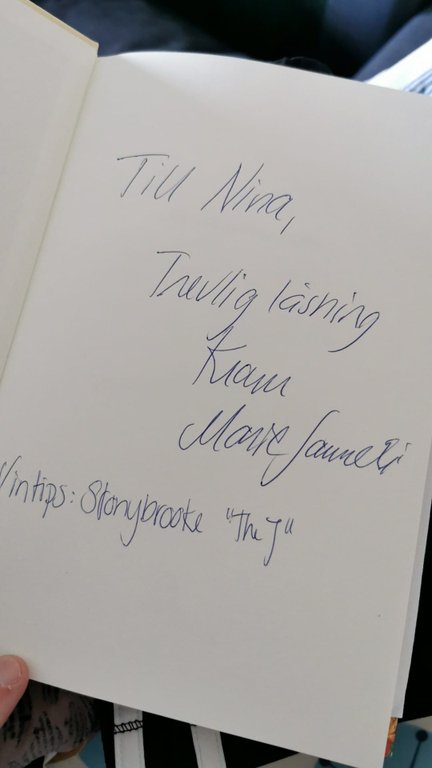 Till Nina,
Trevlig läsning
Kram
Marie
Vintips: Stonybrooke "The J"